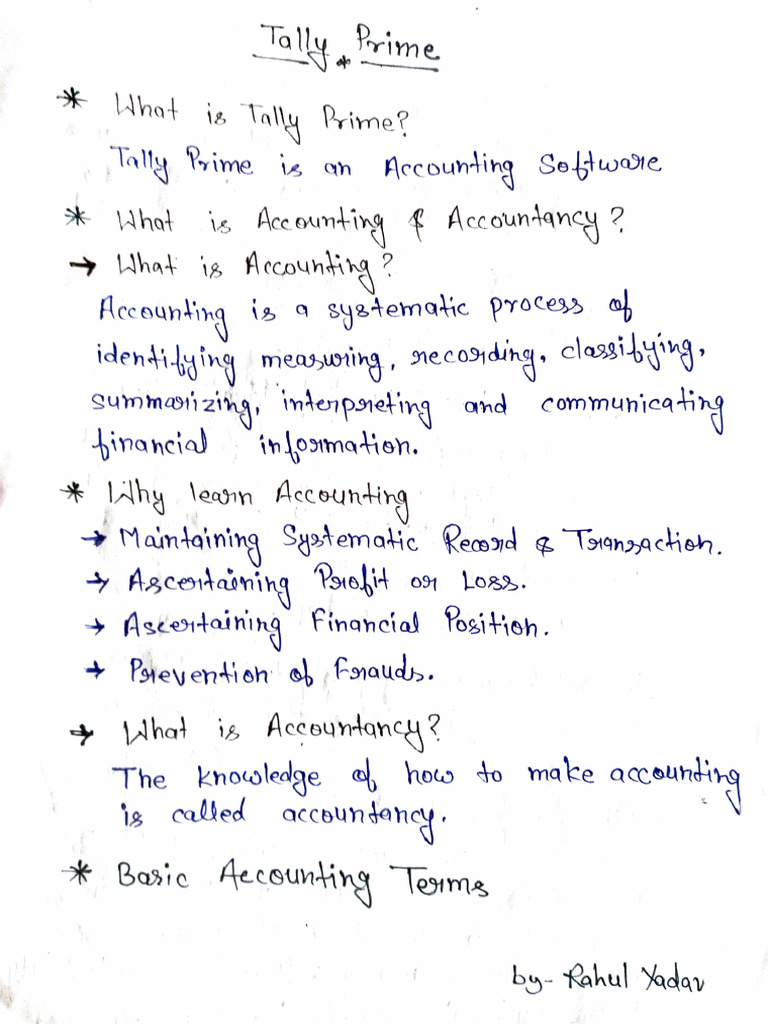 Tally * Prime
* What is Tally Prime?
Tally Prime is an Accounting Software
* What is Accounting & Accountancy?
→ What is Accounting?
Accounting is a systematic process of
identifying measuring, recording, classifying,
summarizing, interpreting and communicating
financial information.
* Why learn Accounting
→ Maintaining Systematic Record & Transaction.
→ Ascertaining Profit or Loss.
→ Ascertaining Financial Position.
→ Prevention of Frauds.
→ What is Accountancy?
The knowledge of how to make accounting
is called accountancy.
* Basic Accounting Terms
by- Rahul Yadav